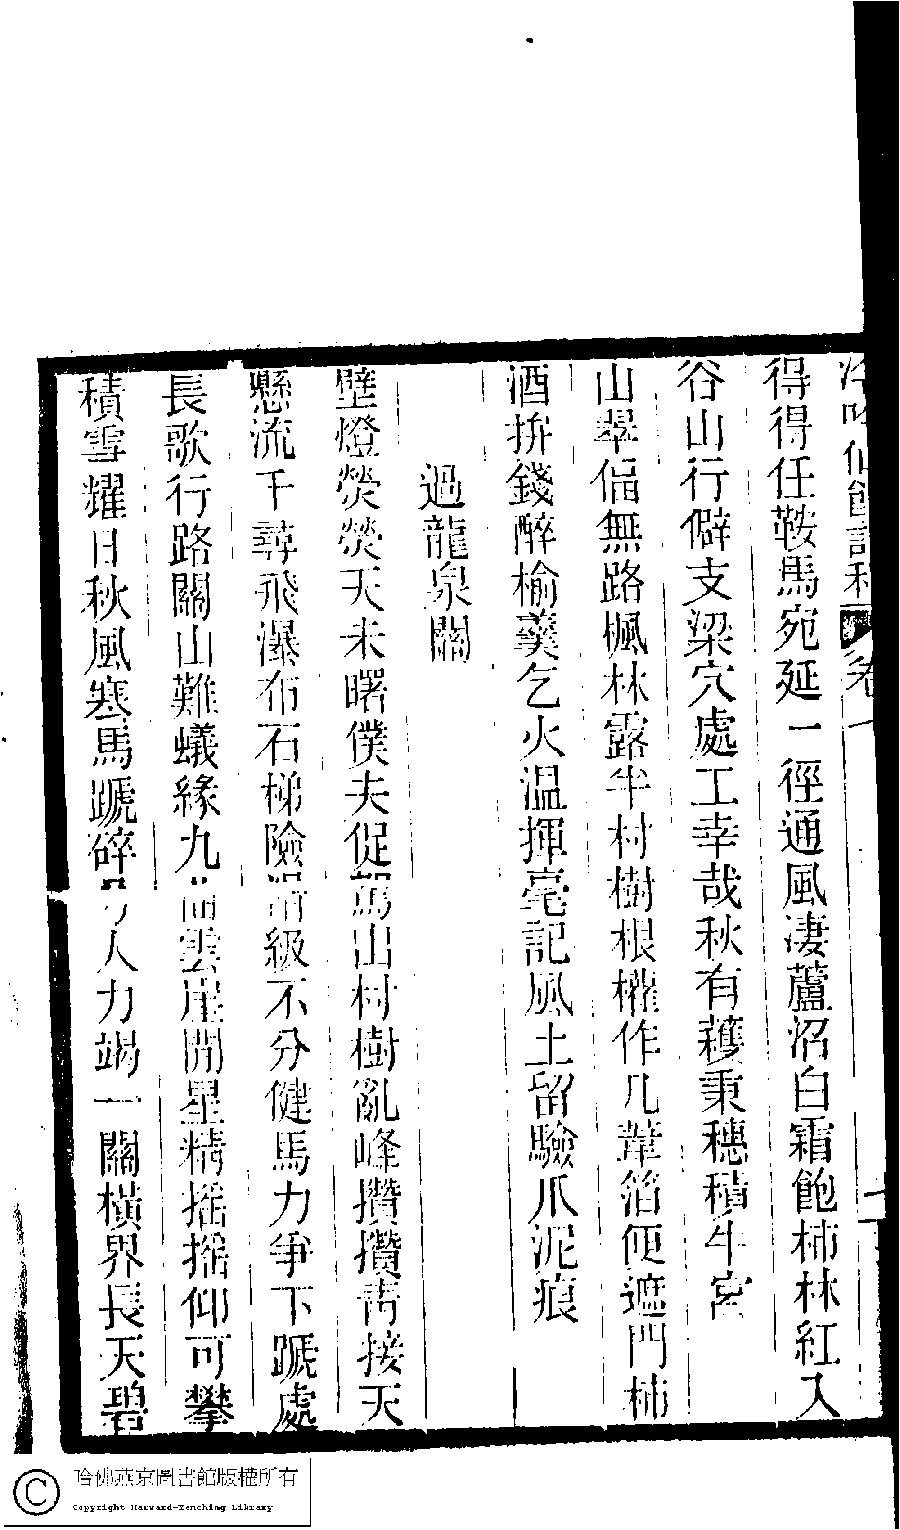 冷吟仙館詩稿 卷一
得得任鞍馬宛延一徑通風淒蘆沼白霜飽柿林紅入
谷山行僻支梁穴處工幸哉秋有穫秉穗積牛宮
山翠偪無路楓林露半村樹根權作几葦箔便遮門柿
酒拚錢醉榆羹乞火溫揮毫記風土留驗爪泥痕
過龍泉關
壁燈熒熒天未曙僕夫促駕山村樹亂峰攢攢靑接天
懸流千尋飛瀑布石梯險滑級不分健馬力爭下蹏處
長歌行路關山難蟻緣九曲雲崖開星精搖搖仰可攀
積雪耀日秋風寒馬蹏碎 人力竭一關橫界長天碧
哈佛燕京圖書館版權所有
Copyright Harvard-Yenching Library